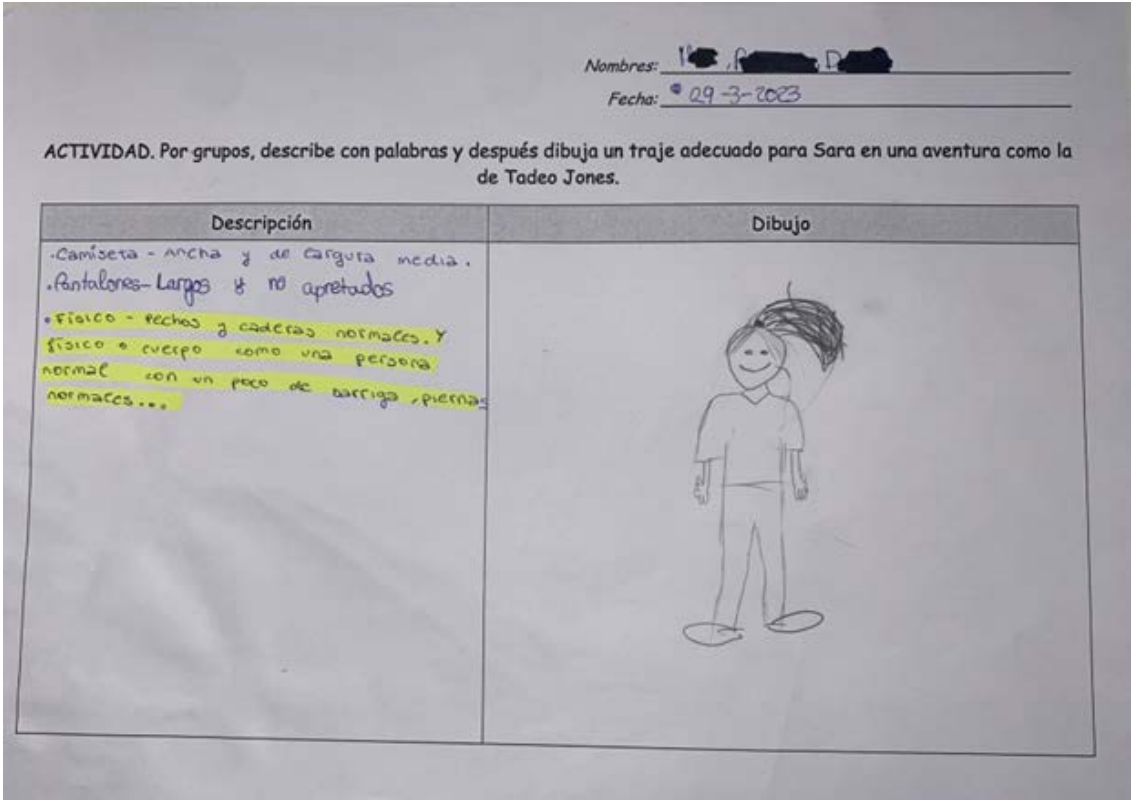 Nombres:
Fecha: 29-3-2023
ACTIVIDAD. Por grupos, describe con palabras y después dibuja un traje adecuado para Sara en una aventura como la
de Tadeo Jones.
Descripción
Dibujo
·Camiseta - Ancha y de largura media.
·Pantalones- Largos y no apretados
·Físico - Pechos y caderas normales. Y
físico o cuerpo como una persona
normal con un poco de barriga, piernas
normales...